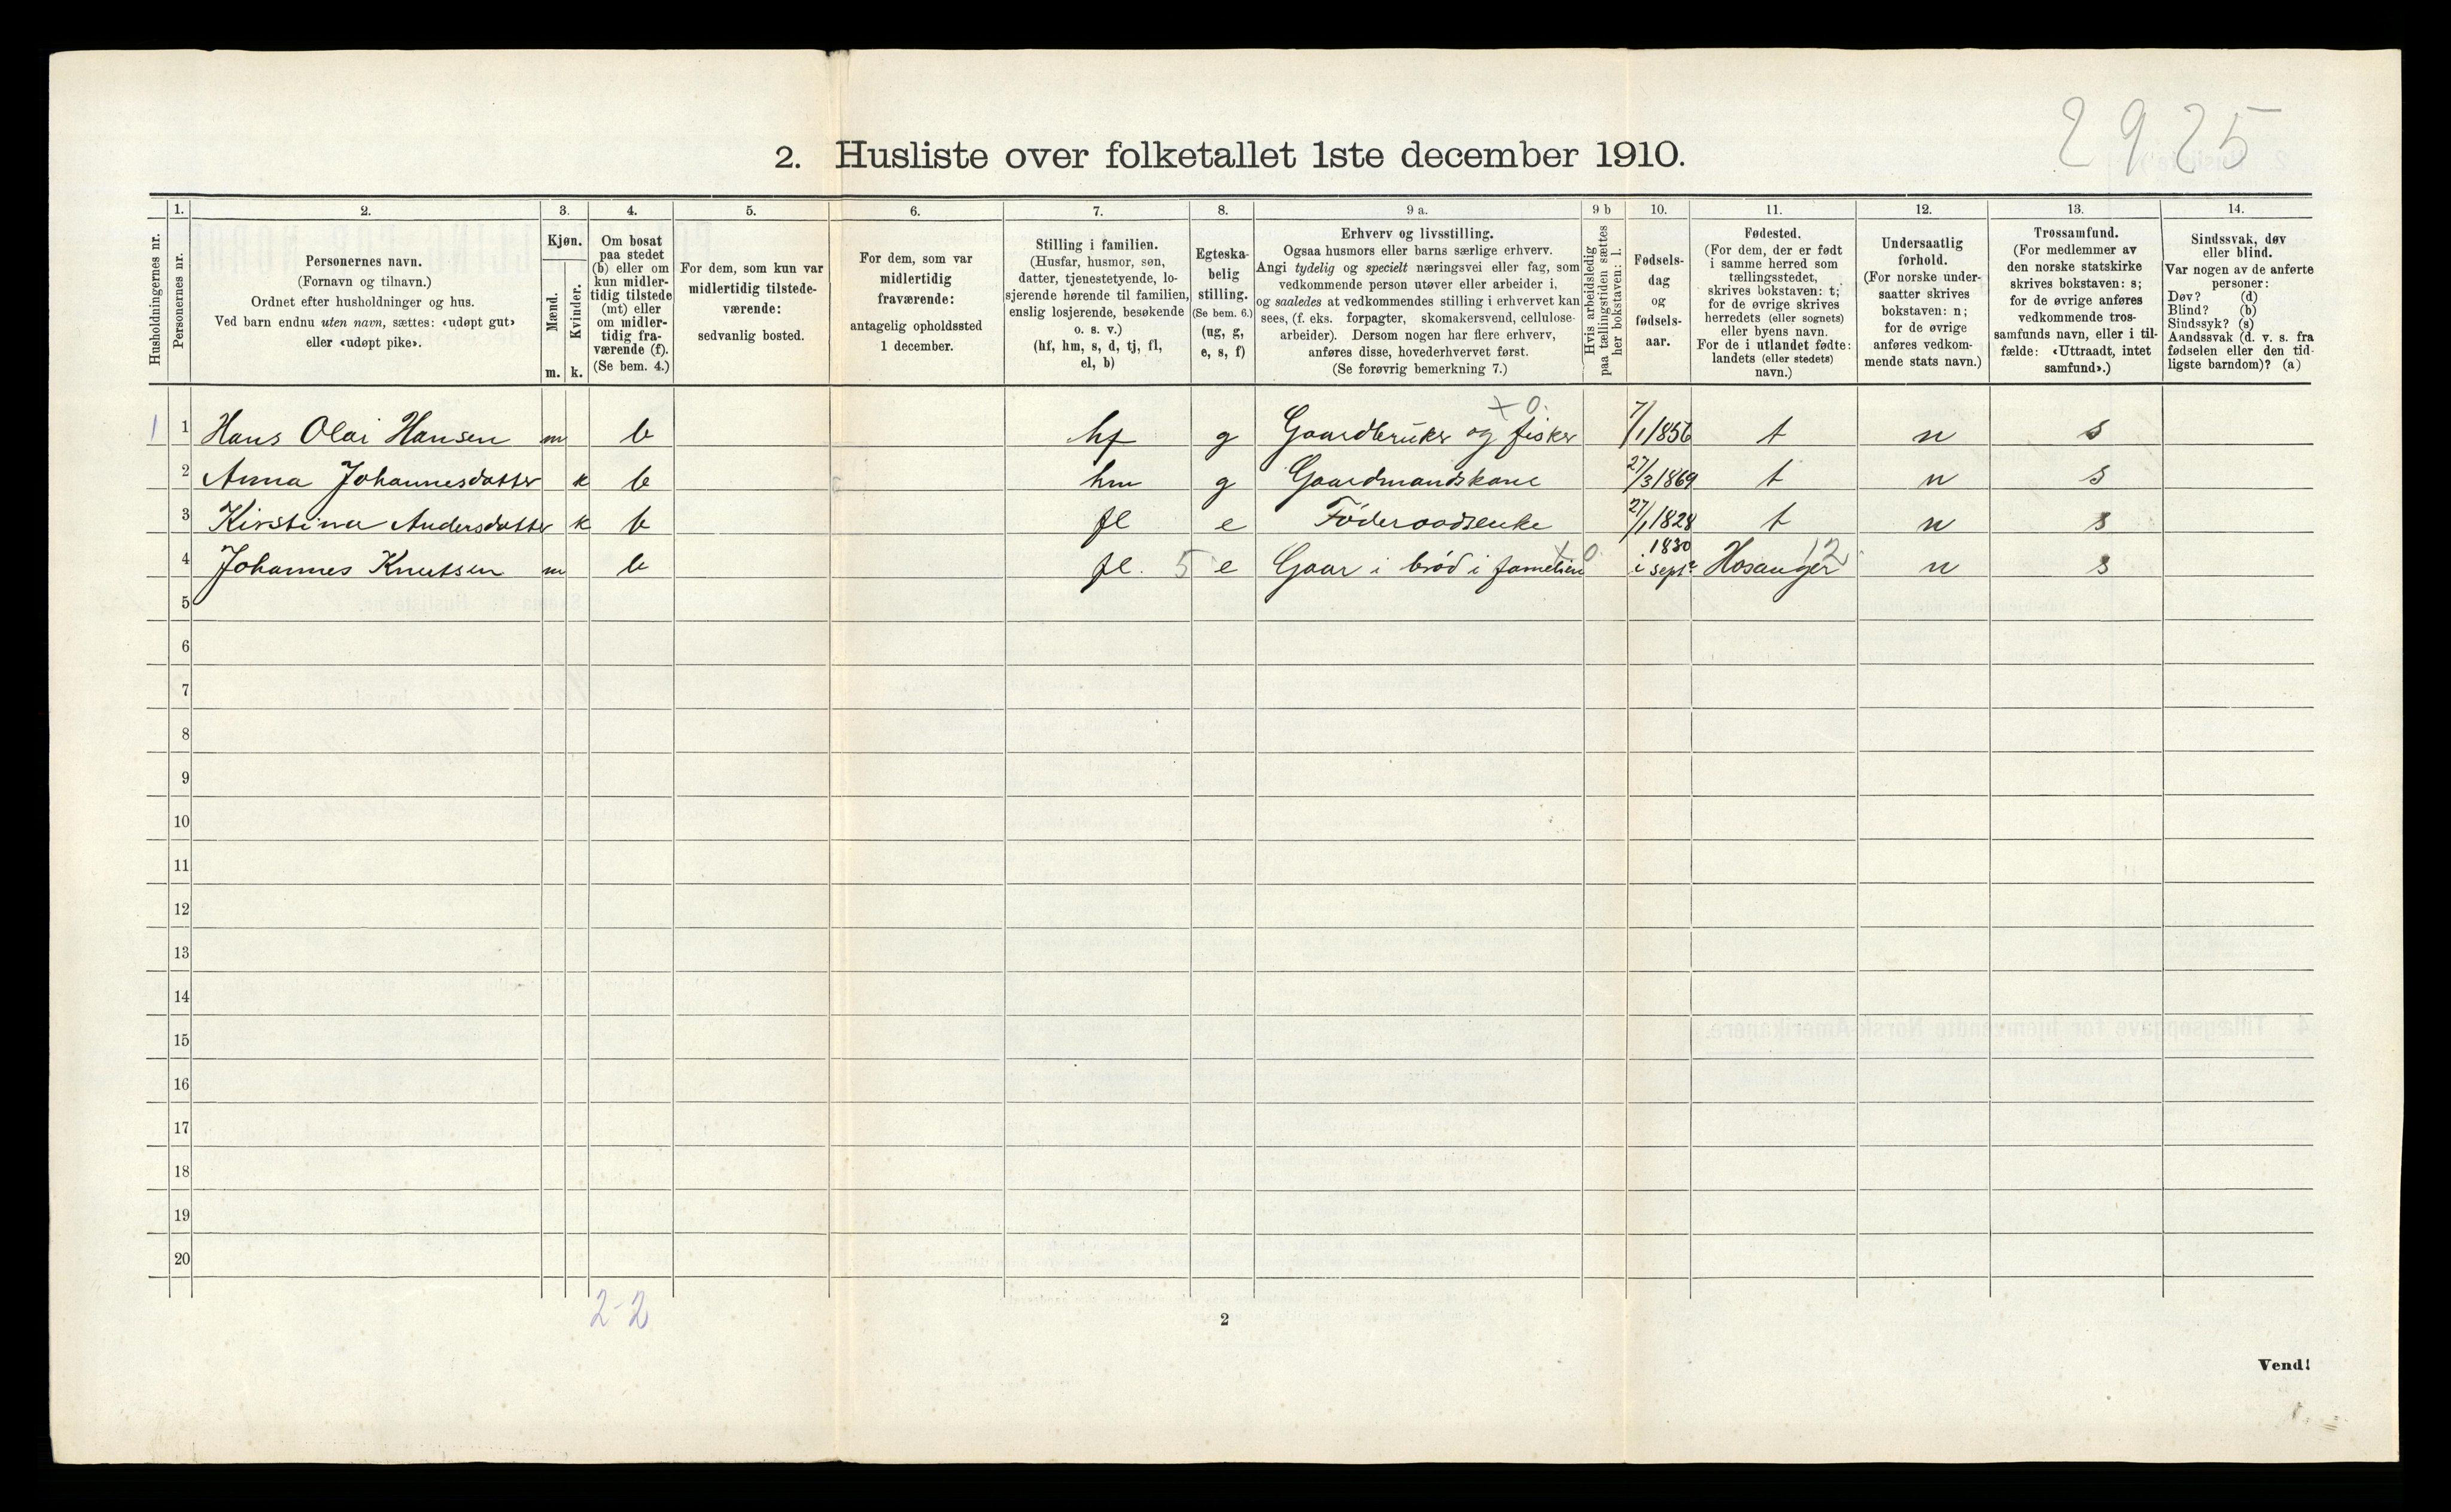 2925
2. Husliste over folketallet 1ste december 1910.
1. 2. 3. 4. 5. 6. 7. 8. 9 a. 9 b 10. 11. 12. 13. 14.
Husholdningernes nr.
Personernes nr.
Personernes navn.
(Fornavn og tilnavn.)
Ordnet efter husholdninger og hus.
Ved barn endnu uten navn, sættes: «udøpt gut»
eller «udøpt pike».
Kjøn.
Mænd.
Kvinder.
m. k.
Om bosat
paa stedet
(b) eller om
kun midler-
tidig tilstede
(mt) eller
om midler-
tidig fra-
værende (f).
(Se bem. 4.)
For dem, som kun var
midlertidig tilstede-
værende:
sedvanlig bosted.
For dem, som var
midlertidig
fraværende:
antagelig opholdssted
1 december.
Stilling i familien.
(Husfar, husmor, søn,
datter, tjenestetyende, lo-
sjerende hørende til familien,
enslig losjerende, besøkende
o. s. v.)
(hf, hm, s, d, tj, fl,
el, b)
Egteska-
belig
stilling.
(Se bem. 6.)
(ug, g,
e, s, f)
Erhverv og livsstilling.
Ogsaa husmors eller barns særlige erhverv.
Angi tydelig og specielt næringsvei eller fag, som
vedkommende person utøver eller arbeider i,
og saaledes at vedkommendes stilling i erhvervet kan
sees, (f. eks. forpagter, skomakersvend, cellulose-
arbeider). Dersom nogen har flere erhverv,
anføres disse, hovederhvervet først.
(Se forøvrig bemerkning 7.)
Hvis arbeidsledig
paa tællingstiden sættes
her bokstaven: l.
Fødsels-
dag
og
fødsels-
aar.
Fødested.
(For dem, der er født
i samme herred som
tællingsstedet,
skrives bokstaven: t;
for de øvrige skrives
herredets (eller sognets)
eller byens navn.
For de i utlandet fødte:
landets (eller stedets)
navn.)
Undersaatlig
forhold.
(For norske under-
saatter skrives
bokstaven: n;
for de øvrige
anføres vedkom-
mende stats navn.)
Trossamfund.
(For medlemmer av
den norske statskirke
skrives bokstaven: s;
for de øvrige anføres
vedkommende tros-
samfunds navn, eller i til-
fælde: «Uttraadt, intet
samfund».)
Sindssvak, døv
eller blind.
Var nogen av de anførte
personer:
Døv? (d)
Blind? (b)
Sindssyk? (s)
Aandssvak (d. v. s. fra
fødselen eller den tid-
ligste barndom)? (a)
1 1 Hans Olai Hansen m b hf g Gaardbruker og fisker x 0. 7/1 1856 t n s
2 Anna Johannesdatter k b hm g Gaardmandskone 27/3 1869 t n s
3 Kirstina Andersdatter k b fl e Føderaadsenke 27/1 1828 t n s
4 Johannes Knutsen m b fl. 5 e Gaar i brød i familien x 0. 1830 i sept. Hosanger 12 n s
5
6
7
8
9
10
11
12
13
14
15
16
17
18
19
20
2-2
2
Vend!